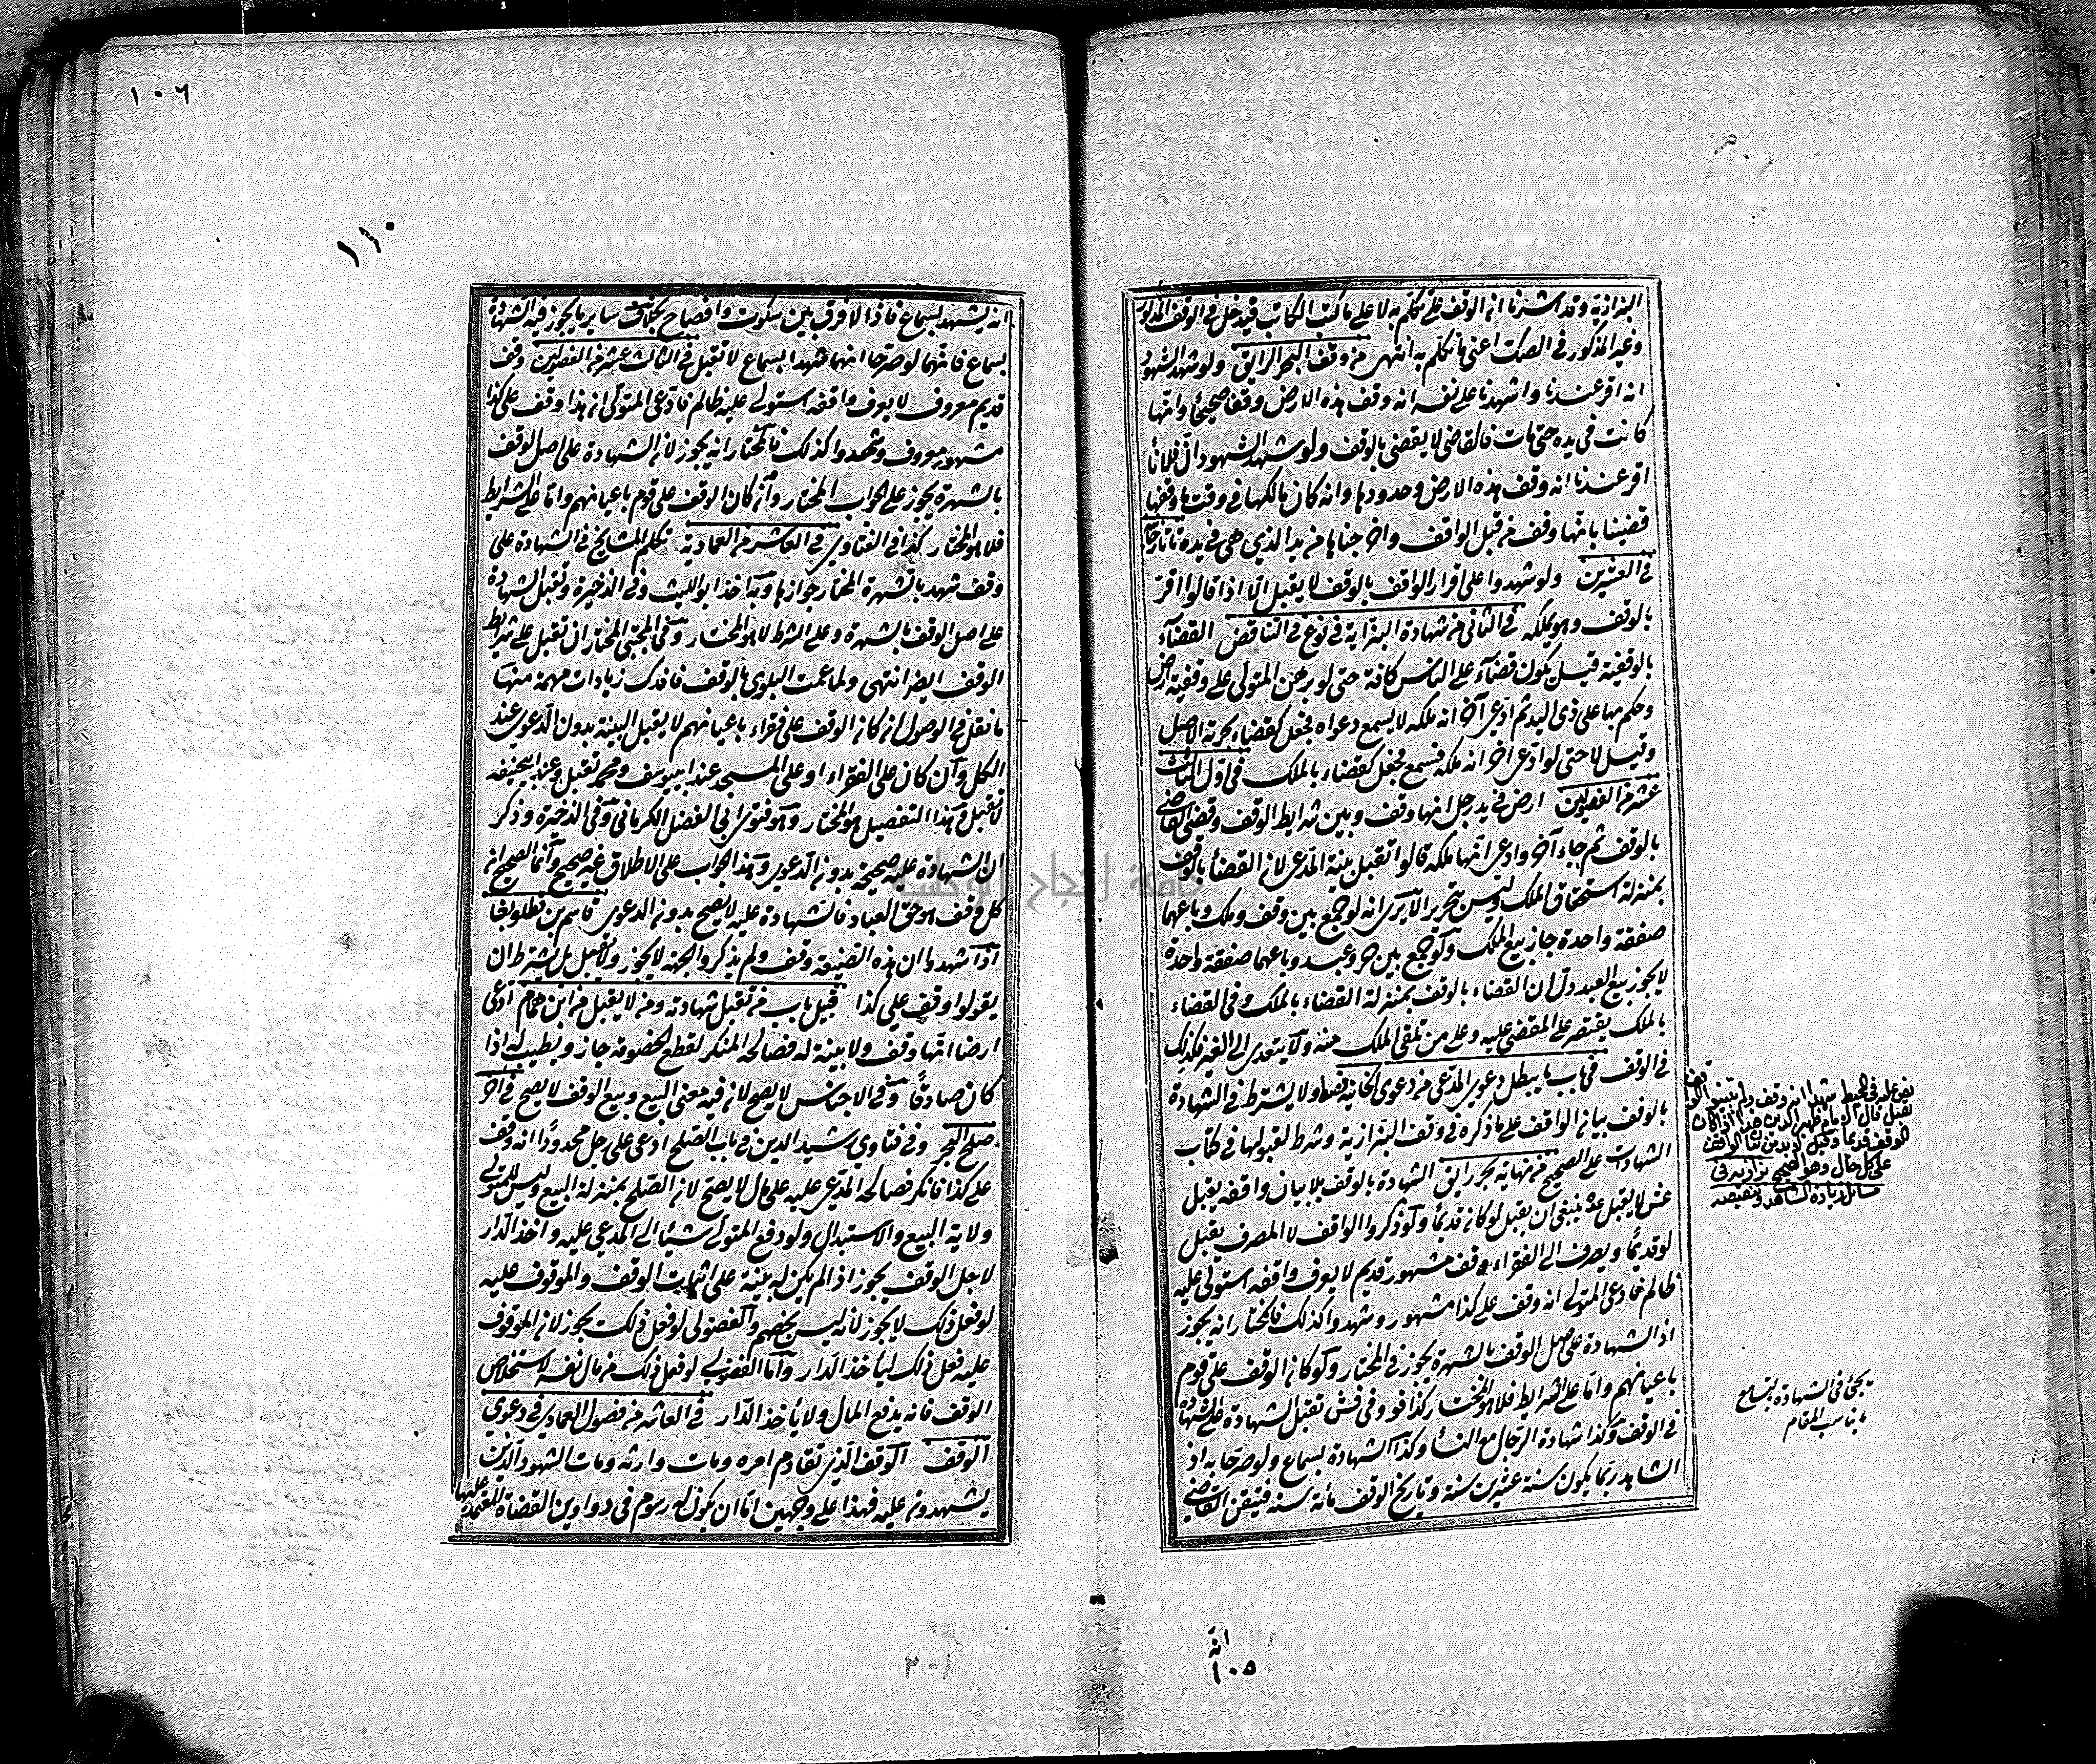 البزازية وقد اشرنا انه الوقف على ما تكلم به لا على ما كتب الكاتب فيدخل في الوقف المذكور
وغير المذكور في الصك اعني ما تكلم به انتهى من وقف البحر الرايق ولو شهد الشهود
انه اقر عندنا واشهدنا على نفسه انه وقف هذه الارض وقفا صحيحا وانها
كانت في يده حتى مات فالقاضي لا يقضي بالوقف ولو شهد الشهود ان فلانا
اقر عندنا انه وقف هذه الارض وحدودها وانه كان مالكها في وقت ما وقفها
قضينا بانها وقف من قبل الواقف واخرجناها من يد الذي هي في يده تاتارخانية
في العشرين ولو شهدوا على اقرار الواقف بالوقف لا يقبل الا اذا قالوا اقر
بالوقف وهو يملكه في الثاني من شهادة البزازية في نوع في التناقض القضاء
بالوقفية قيل يكون قضاء على الناس كافة حتى لو برهن المتولي على وقفية ارض
وحكم بها على ذي اليد ثم ادعى آخر انه ملكه لا يسمع دعواه فجعل كقضاء بحرية الاصل
وقيل لا حتى لو ادعى آخر انه ملكه فسمع فجعل كقضاء بالملك في اول الثالث
عشر من الفصولين ارض في يد رجل انها وقف وبين شرايط الوقف وقضى القاضي
بالوقف ثم جاء آخر وادعى انها ملكه قالوا تقبل بينة المدعي لان القضاء بالوقف
بمنزلة استحقاق الملك وليس بتحرير الا يرى انه لو جمع بين وقف وملك وباعهما
صفقة واحدة جاز بيع الملك ولو جمع بين حر وعبد وباعهما صفقة واحدة
لا يجوز بيع العبد دل ان القضاء بالوقف بمنزلة القضاء بالملك وفي القضاء
بالملك يقتصر على المقضي عليه وعلى من تلقى الملك منه ولا يتعدى الى الغير فكذلك
في الوقف في باب ما يبطل دعوى المدعي من دعوى الخانية ولا يشترط في الشهادة
بالوقف بيان الواقف على ما ذكره في وقف البزازية وشرط لقبولها في كتاب
الشهادات على الصحيح من نهاية بحر رايق الشهادة بالوقف بلا بيان واقفه يقبل
ينبغي ان يقبل لو كان قديما ولو ذكروا الواقف لا المصرف يقبل
لو قديما ويصرف الى الفقراء وقف مشهور قديم لا يعرف واقفه استولى عليه
ظالم فادعى المتولي انه وقف على كذا مشهور وشهدوا كذلك فالمختار انه يجوز
اذ الشهادة على اصل الوقف بالشهرة يجوز في المختار ولو كان الوقف على قوم
باعيانهم واما على الشرايط فلا هو المختار كذا في وفي فش تقبل الشهادة على الشهادة
في الوقف وكذا شهادة الرجال مع النساء وكذا الشهادة بسماع ولو صرحا به اذ
الشاهد ربما يكون سنه عشرين سنة وتاريخ الوقف مائة سنة فتيقن القاضي
نص عليه في المحيط شهدا انه وقف ولم يبينوا الواقف
تقبل قال الامام ظهير الدين اذا كان
الوقف قديما وقيل لا بد من بيان الواقف
على كل حال وهو الصحيح بزازية في
مسائل زيادة الشاهد ونقيصه
يجئ في الشهادة بالتسامع
ما يناسب المقام
١٠٥
١٠٦
١١٠
انه يشهد بسماع فاذا لا فرق بين سكوت وافصاح بخلاف ساير ما يجوز فيه الشهادة
بسماع فانهما لو صرحا انهما شهدا بسماع لا تقبل في الثالث عشر من الفصولين وقف
قديم معروف لا يعرف واقفه استولى عليه ظالم فادعى المتولي انه هذا وقف على كذا
مشهور معروف وشهدوا كذلك فالمختار انه يجوز لان الشهادة على اصل الوقف
بالشهرة يجوز على الجواب المختار وان كان الوقف على قوم باعيانهم واما على الشرايط
فلا هو المختار كذا في الفتاوى في العاشر من العمادية تكلم المشايخ في الشهادة على
وقف شهد بالشهرة المختار جوازها وبه اخذ ابو الليث وفي الذخيرة وتقبل الشهادة
على اصل الوقف بالشهرة وعلى الشرط لا هو المختار وفي المجتبى المختار ان تقبل على شرايط
الوقف ايضا انتهى ولما عمت البلوى بالوقف فافدك زيادات مهمة منها
ما نقل في الوصول ان كان الوقف على فقراء باعيانهم لا يقبل البينة بدون الدعوى عند
الكل وان كان على الفقراء او على المسجد عند ابي يوسف ومحمد تقبل وعند ابي حنيفة
لا تقبل وهذا التفصيل هو المختار وهو فتوى ابي الفضل الكرماني وفي الذخيرة وذكر
ان الشهادة عليه صحيحة بدون الدعوى وهذا الجواب على الاطلاق غير صحيح وانما الصحيح ان
كل وقف هو حق العباد فالشهادة عليه لا يصح بدون الدعوى قاسم بن قطلوبغا
اذا شهدوا ان هذه الضيعة وقف ولم يذكروا الجهة لا يجوز ولا تقبل بل يشترط ان
يقولوا وقف على كذا قبيل باب من تقبل شهادته ومن لا يقبل من ابن همام ادعى
ارضا انها وقف ولا بينة له فصالحه المنكر لقطع الخصومة جاز ويطيب له اذا
كان صادقا وفي الاجناس لا يصح لانه فيه معنى البيع وبيع الوقف لا يصح في آخر
صلح البحر وفي فتاوى رشيد الدين في باب الصلح ادعى على رجل محدودا انه وقف
على كذا فانكر فصالحه المدعى عليه على مال لا يصح لان الصلح بمنزلة البيع وليس للمتولي
ولاية البيع والاستبدال ولو دفع المتولي شيئا الى المدعى عليه واخذ الدار
لاجل الوقف يجوز اذا لم يكن له بينة على اثبات الوقف والموقوف عليه
لو فعل ذلك لا يجوز لانه ليس بخصم والفضولي لو فعل ذلك يجوز لان الموقوف
عليه فعل ذلك ليأخذ الدار واما الفضولي لو فعل ذلك من مال نفسه لاستخلاص
الوقف فانه يدفع المال ولا يأخذ الدار في العاشر من فصول العمادي في دعوى
الوقف الوقف الذي تقادم امره ومات وارثه ومات الشهود الذين
يشهدون عليه فهذا على وجهين اما ان يكون له رسوم في دواوين القضاة المعتمد عليها